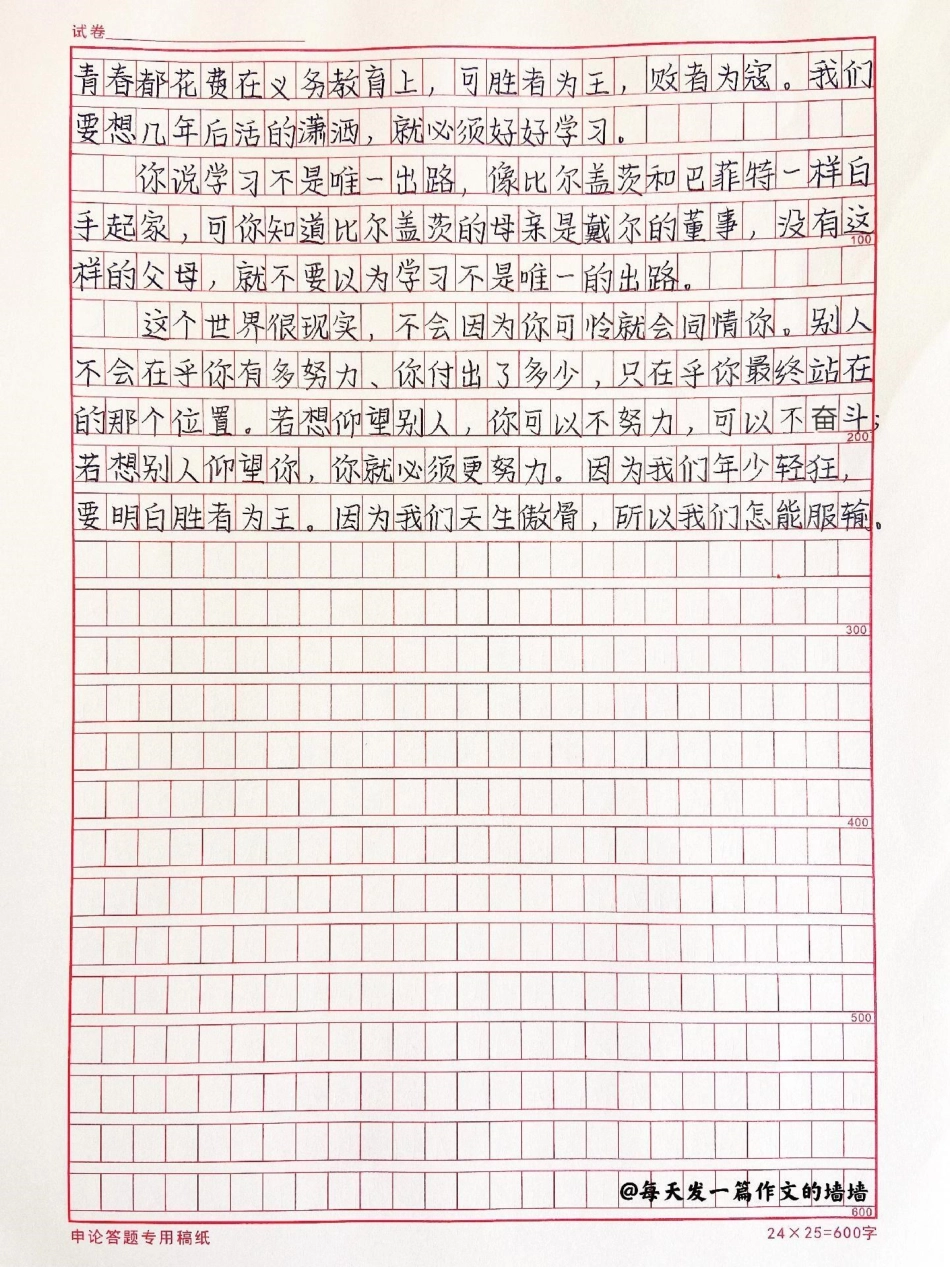 试卷
青春都花费在义务教育上，可胜者为王，败者为寇。我们
要想几年后活的潇洒，就必须好好学习。
你说学习不是唯一出路，像比尔盖茨和巴菲特一样白
手起家，可你知道比尔盖茨的母亲是戴尔的董事，没有这
100
样的父母，就不要以为学习不是唯一的出路。
这个世界很现实，不会因为你可怜就会同情你。别人
不会在乎你有多努力、你付出了多少，只在乎你最终站在
的那个位置。若想仰望别人，你可以不努力，可以不奋斗；
200
若想别人仰望你，你就必须更努力。因为我们年少轻狂，
要明白胜者为王。因为我们天生傲骨，所以我们怎能服输。
300
400
500
@每天发一篇作文的墙墙
600
申论答题专用稿纸
24×25=600字